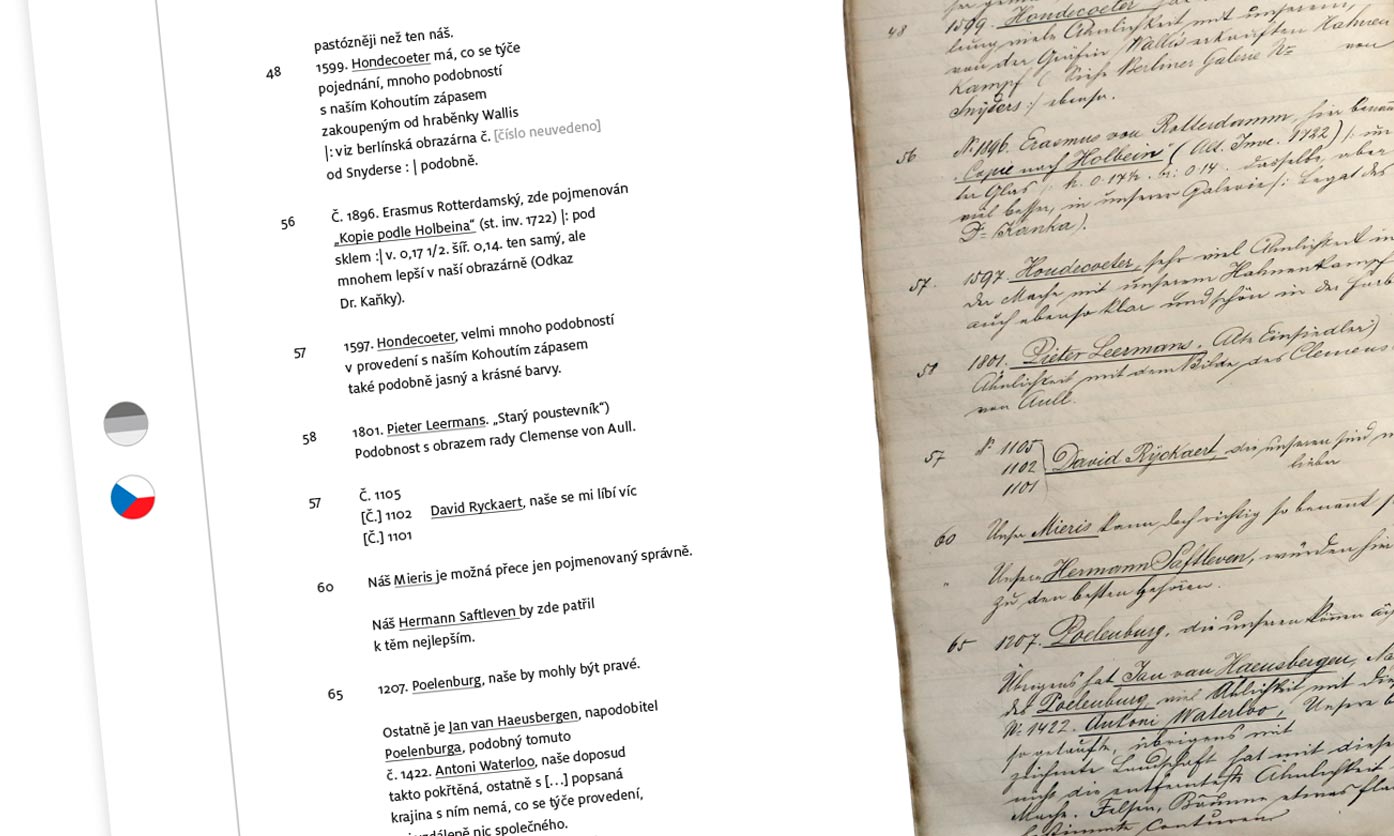 pastózněji než ten náš.
48 1599. Hondecoeter má, co se týče
pojednání, mnoho podobností
s naším Kohoutím zápasem
zakoupeným od hraběnky Wallis
|: viz berlínská obrazárna č. [číslo neuvedeno]
od Snyderse : | podobně.
56 Č. 1896. Erasmus Rotterdamský, zde pojmenován
„Kopie podle Holbeina“ (st. inv. 1722) |: pod
sklem :| v. 0,17 1/2. šíř. 0,14. ten samý, ale
mnohem lepší v naší obrazárně (Odkaz
Dr. Kaňky).
57 1597. Hondecoeter, velmi mnoho podobností
v provedení s naším Kohoutím zápasem
také podobně jasný a krásné barvy.
58 1801. Pieter Leermans. „Starý poustevník“)
Podobnost s obrazem rady Clemense von Aull.
57 Č. 1105
[Č.] 1102 David Ryckaert, naše se mi líbí víc
[Č.] 1101
60 Náš Mieris je možná přece jen pojmenovaný správně.
Náš Hermann Saftleven by zde patřil
k těm nejlepším.
65 1207. Poelenburg, naše by mohly být pravé.
Ostatně je Jan van Haeusbergen, napodobitel
Poelenburga, podobný tomuto
č. 1422. Antoni Waterloo, naše doposud
takto pokřtěná, ostatně s [...] popsaná
krajina s ním nemá, co se týče provedení,
nic společného.
48 1599. Hondecoeter, hat
lung viele Ähnlichkeit mit unserem,
von der Gräfin Wallis erkauften Hahnen
Kampf (Siehe Berliner Galerie No von
Snyders :/ ebenso.
56 No 1896. Erasmus von Rotterdamm, hier benannt
„Copie nach Holbein“ (Alt. Inve. 1722) /: un
ter Glas /: h. 0.17½. br: 0.14. dasselbe, aber
viel besser, in unserer Galerie /: Legat des
Dr Kanka).
57. 1597. Hondecoeter, sehr viel Ähnlichkeit in
der Mache mit unserem Hahnenkampf
auch ebenso klar und schön in der Farb
58 1801. Pieter Leermans. Alte Einsiedler)
Ähnlichkeit mit dem Bilde des Clemens
von Aull.
57 No 1105
1102 David Ryckaert, die unseren sind m
1101 lieber
60 Unser Mieris kann doch richtig so benannt
" Unser Hermann Saftleven, würden hier
zu den besten gehören.
65 1207. Poelenburg, die unseren können
Übrigens hat Jan van Haeusbergen, Na
des Poelenburg viel Ählichkeit mit die
No 1422. Antoni Waterloo, Unsere
so getaufte, übrigens mit
zeichnete Landschaft hat mit diese
nicht die entfernteste Ähnlichkeit
Mache. Felsen, Bäume etwas fla
bestimmte Conturen